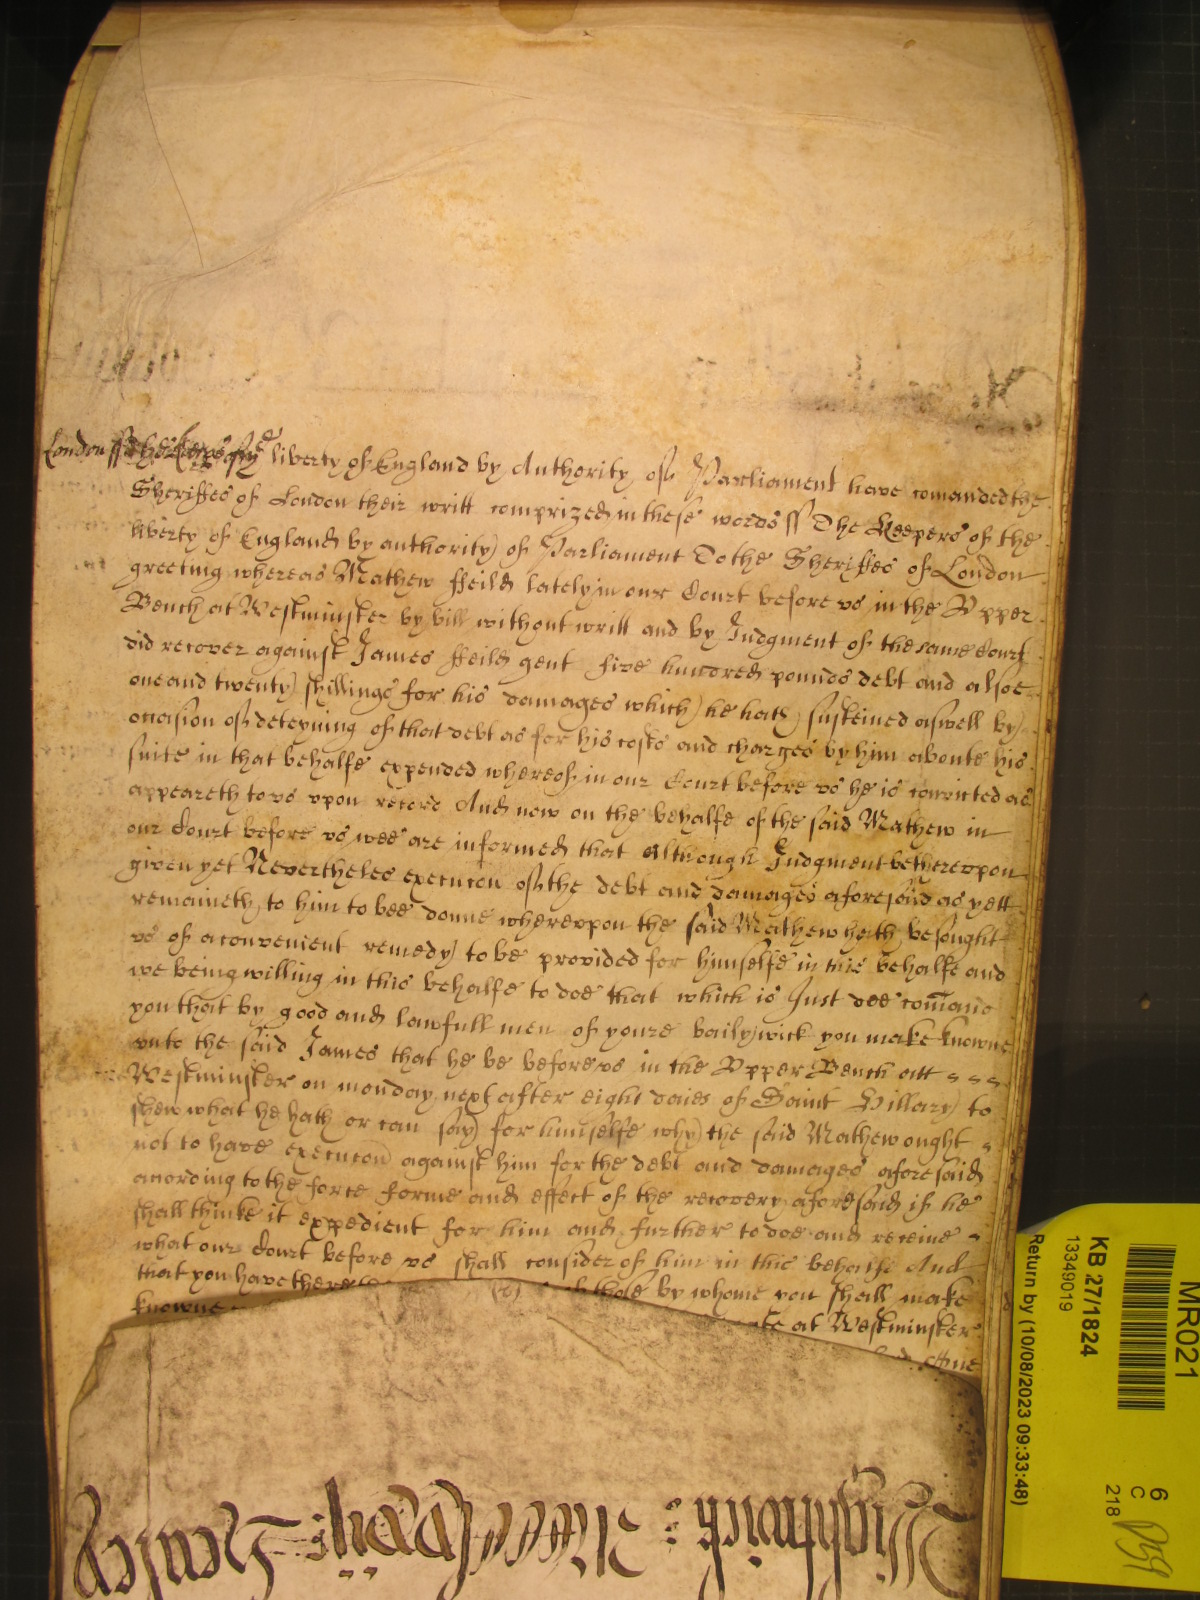 London ss The Keepers of the liberty of England by Authority of Parliament have comanded the
Sheriffes of London their writt comprized in these words ss The Keepers of the
liberty of England by authority of Parliament To the Sheriffes of London
greeting whereas Mathew ffeild lately in our Court before us in the Upper
Bench at Westminster by bill without writt and by Judgment of the same Court
did recover against James ffeild gent five hundred pounds debt and alsoe
one and twenty shillings for his damages which he hath susteined aswell by
occasion of deteyning of that debt as for his costs and charges by him aboute his
suite in that behalfe expended whereof in our Court before us he is convicted as
appeareth to us upon record And now on the behalfe of the said Mathew in
our Court before us wee are informed that although Judgment bethereupon
given yet Nevertheles execucon of the debt and damages aforesaid as yett
remaineth to him to bee donne whereupon the said Mathew hath besought
us of a convenient remedy to be provided for himselfe in this behalfe and
we being willing in this behalfe to doe that which is Just doe comand
you that by good and lawfull men of youre bailywick you make knowne
unto the said James that he be before us in the Upper Bench att
Westminster on monday next after eight daies of Saint Hillary to
shew what he hath or can say for himselfe why the said Mathew ought
not to have execucon against him for the debt and damages aforesaid
acording to the force forme and effect of the recovery aforesaid if he
shall thinke it expedient for him and further to doe and receive
what our Court before us shall consider of him in this behalfe And
that you have there those by whome you shall make
knowne at Westminster
MR021
6
C
218
KB 27/1824
13349019
Return by (10/08/2023 09:33:48)